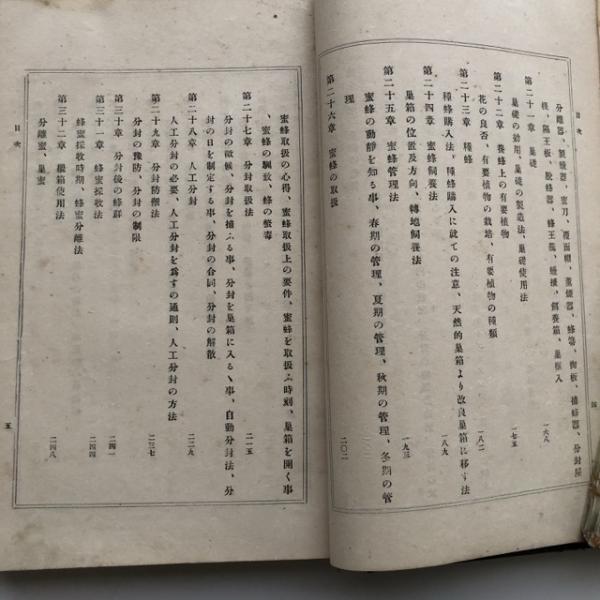 目次
四
分離器、製蠟器、蜜刀、覆面帽、薫煙器、蜂箒、飼板、捕蜂器、分封屋
根、隔王板、脱蜂器、蜂王籠、飼養箱、巣框入
第二十一章 巣礎 一六八
巣礎の効用、巣礎の製造法、巣礎使用法
第二十二章 養蜂上の有要植物 一七五
花の良否、有要植物の栽培、有要植物の種類
第二十三章 種蜂 一八二
種蜂購入法、種蜂購入に就ての注意、天然的巣箱より改良巣箱に移す法
第二十四章 蜜蜂飼養法 一八九
巣箱の位置及方向、轉地飼養法
第二十五章 蜜蜂管理法 一九三
蜜蜂の動靜を知る事、春期の管理、夏期の管理、秋期の管理、冬期の管
理
第二十六章 蜜蜂の取扱 二〇二
目次
五
蜜蜂取扱の心得、蜜蜂取扱上の要件、蜜蜂を取扱ふ時刻、巣箱を開く事
、蜜蜂の馴致、蜂の螫毒
第二十七章 分封取扱法 二一五
分封の徴候、分封を捕ふる事、分封を巣箱に入るゝ事、自動分封法、分
封の日を制定する事、分封の合同、分封の解散
第二十八章 人工分封 二二九
人工分封の必要、人工分封を爲すの通則、人工分封の方法
第二十九章 分封防禦法 二三七
分封の豫防、分封の制限
第三十章 分封後の蜂群 二四一
第三十一章 蜂蜜採收法 二四四
蜂蜜採收時期、蜂蜜分離法
第三十二章 繼箱使用法 二四八
分離蜜、巣蜜